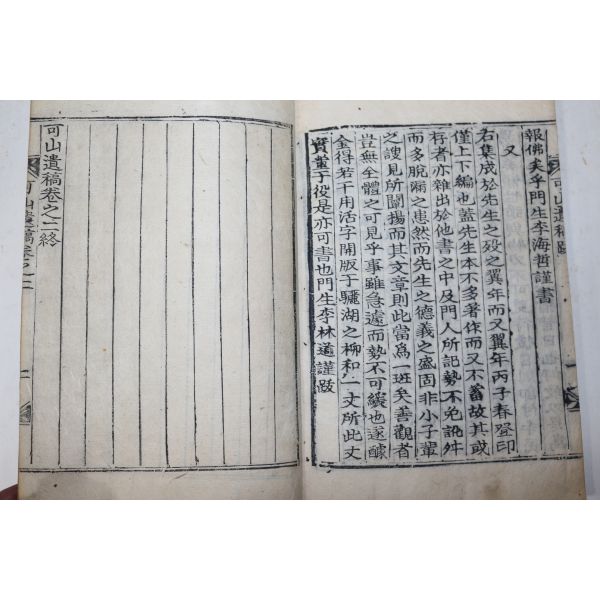 可山遺稿跋
一
報佛矣乎門生李海哲謹書
又
右集成於先生之歿之翼年而又翼年丙子春登印
僅上下編也蓋先生本不多著作而又不蓄故其或
存者亦雜出於他書之中及門人所記勢不免訛舛
而多脫爾之患然而先生之德義之盛固非小子輩
之謏見所闡揚而其文章則此當爲一斑矣善觀者
豈無全體之可見乎事雖急遽而勢不可緩也遂醵
金得若干用活字開版于驪湖之柳和一丈所此丈
實董于役是亦可書也門生李林遒謹跋
可山遺稿卷之二終
可山遺稿卷之二
二